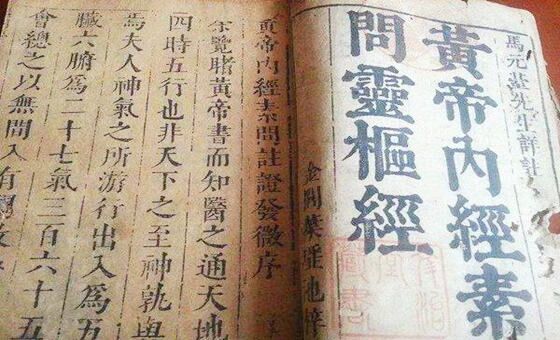 馬元臺先生詳註
黃帝內經素
問靈樞經
金閶葉瑾也梓
圖書
黃帝內經素問註證發微序
余覽睹黃帝書而知醫之通天地
四時五行也非天下之至神孰與
焉夫人神氣之所游行出入為五
臟六腑為二十七氣三百六十五
會總之以無間入有